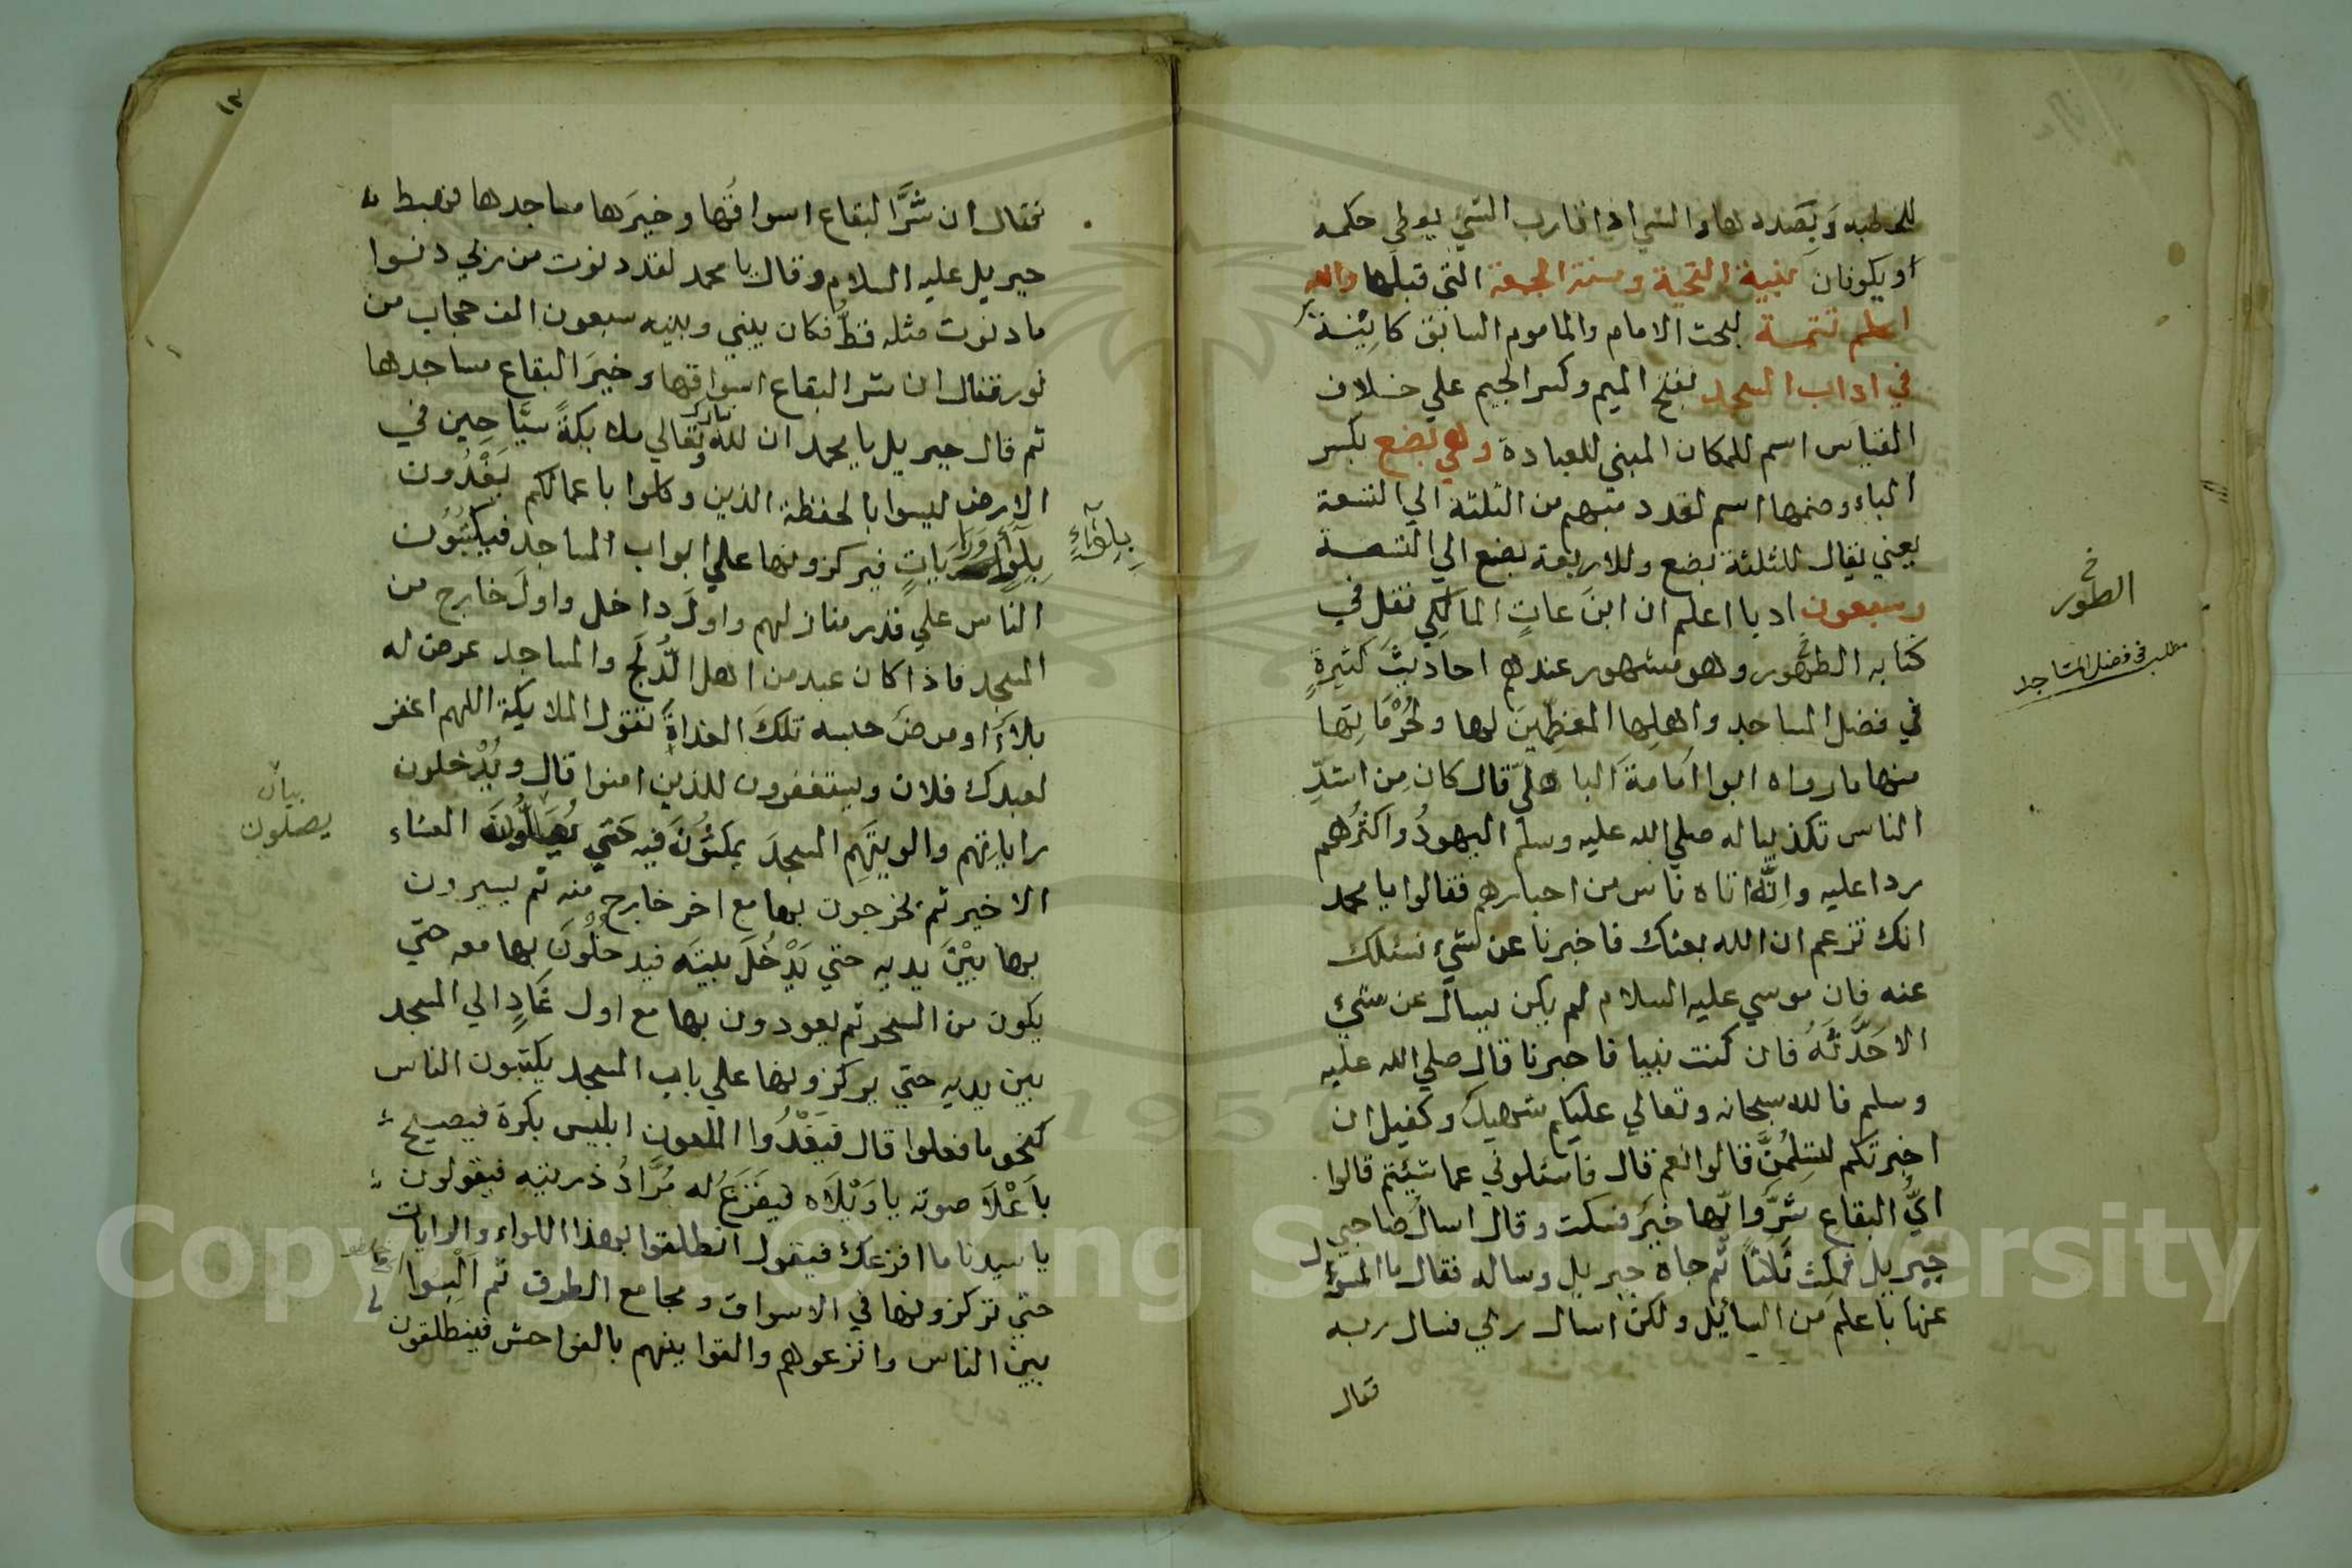 للخطبه وبصدد لها والشي اذا قارب الشي يعطي حكمه
او يكونان بنية التحية وسنة الجمعة التي قبلها والله
اعلم تتمة لبحث الامام والماموم السابق كائنة
في اداب المسجد بفتح الميم وكسر الجيم علي خلاف
القياس اسم للمكان المبني للعبادة وهي بضع بكسر
الباء وضمها اسم لعدد مبهم من الثلثة الي التسعة
يعني يقال للثلثة بضع وللاربعة بضع الي التسعة
وسبعون ادبا اعلم ان ابن عات المالكي نقل في
كتابه الطهور وهو مشهور عندهم احاديث كثيرة
في فضل المساجد واهلها المعظمين لها ولحرماتها
منها ما رواه ابوا امامة الباهلي قال كان من اشد
الناس تكذيبا له صلي الله عليه وسلم اليهود واكثرهم
ردا عليه وانه اتاه ناس من احبارهم فقالوا يا محمد
انك تزعم ان الله بعثك فاخبرنا عن شيء نسئلك
عنه فان موسي عليه السلام لم يكن يسال عن شيء
الا حدثه فان كنت نبيا فاخبرنا قال صلي الله عليه
وسلم فالله سبحانه وتعالي عليكم شهيد وكفيل ان
اخبرتكم لتسلمن قالوا نعم قال فاسئلوني عما شيئتم قالوا
اي البقاع شر وايها خير فسكت وقال اسال صاحبي
جبريل فمكث ثلاثا ثم جاه جبريل وساله فقال ما المسؤل
عنها باعلم من السائل ولكن اسال ربي فسال ربه
فقال
الطور
مطلب في فضل المساجد
١٢
فقال ان شر البقاع اسواقها وخيرها مساجدها فهبط
جبريل عليه السلام وقال يا محمد لقد دنوت من ربي دنوا
ما دنوت مثله قط فكان بيني وبينه سبعون الف حجاب من
نور فقال ان شر البقاع اسواقها وخير البقاع مساجدها
ثم قال جبريل يا محمد ان لله تبارك وتعالي ملايكة سياحين في
الارض ليسوا بالحفظة الذين وكلوا باعمالكم يغدون
بلواء ورايات فيركزونها علي ابواب المساجد فيكتبون
الناس علي قدر منازلهم واول داخل واول خارج من
المسجد فاذا كان عبد من اهل الدلج والمساجد عرض له
بلاء او مرض حبسه تلك الغداة تقول الملايكة اللهم اغفر
لعبدك فلان ويستغفرون للذين امنوا قال ويدخلون
راياتهم والويتهم المسجد يمكثون فيه حتي يصلون العشاء
الاخير ثم يخرجون بها مع اخر خارج منه ثم يسيرون
بها بين يديه حتي يدخل بيته فيدخلون بها معه حتي
يكون من السحر ثم يعودون بها مع اول غاد الي المسجد
بين يديه حتي يركزونها علي باب المسجد يكتبون الناس
كنحو ما فعلوا قال فيغدوا الملعون ابليس بكرة فيصيح
باعلا صوته يا ويلاه فيفزع له مراد ذريته فيقولون
يا سيدنا ما افزعك فيقول انطلقوا بهذا اللواء والرايات
حتي تركزونها في الاسواق ومجامع الطرق ثم البسوا
بين الناس وانزعوهم والقوا بينهم بالفواحش فينطلقون
بلواء
بيان
يصلون